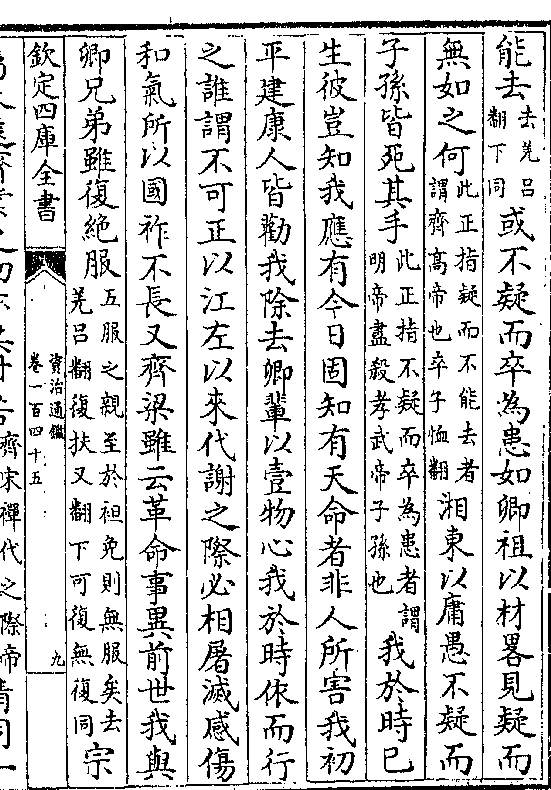 能去去羌呂翻下同或不疑而卒為患如卿祖以材畧見疑而
無如之何此正指疑而不能去者謂齊高帝也卒子恤翻湘東以庸愚不疑而
子孫皆死其手此正指不疑而卒為患者謂明帝盡殺孝武帝子孫也我於時已
生彼豈知我應有今日固知有天命者非人所害我初
平建康人皆勸我除去卿輩以壹物心我於時依而行
之誰謂不可正以江左以來代謝之際必相屠滅感傷
和氣所以國祚不長又齊梁雖云革命事異前世我與
卿兄弟雖復絶服五服之親至於袒免則無服矣去羌呂翻復扶又翻下可復無復同宗
欽定四庫全書
資治通鑑
卷一百四十五
九
齊宋禪代之際帝